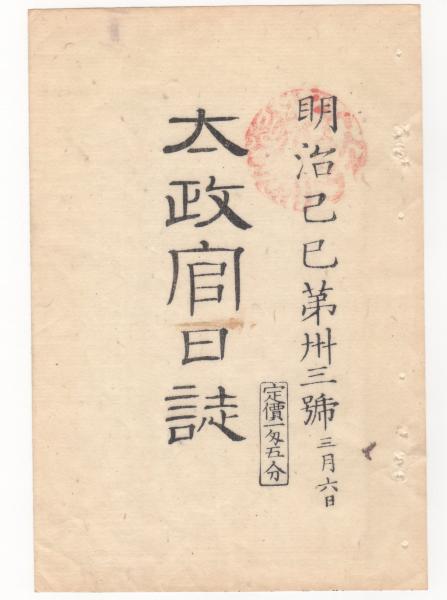 明治己巳第卅三號 三月六日
定價一匁五分
太政官日誌